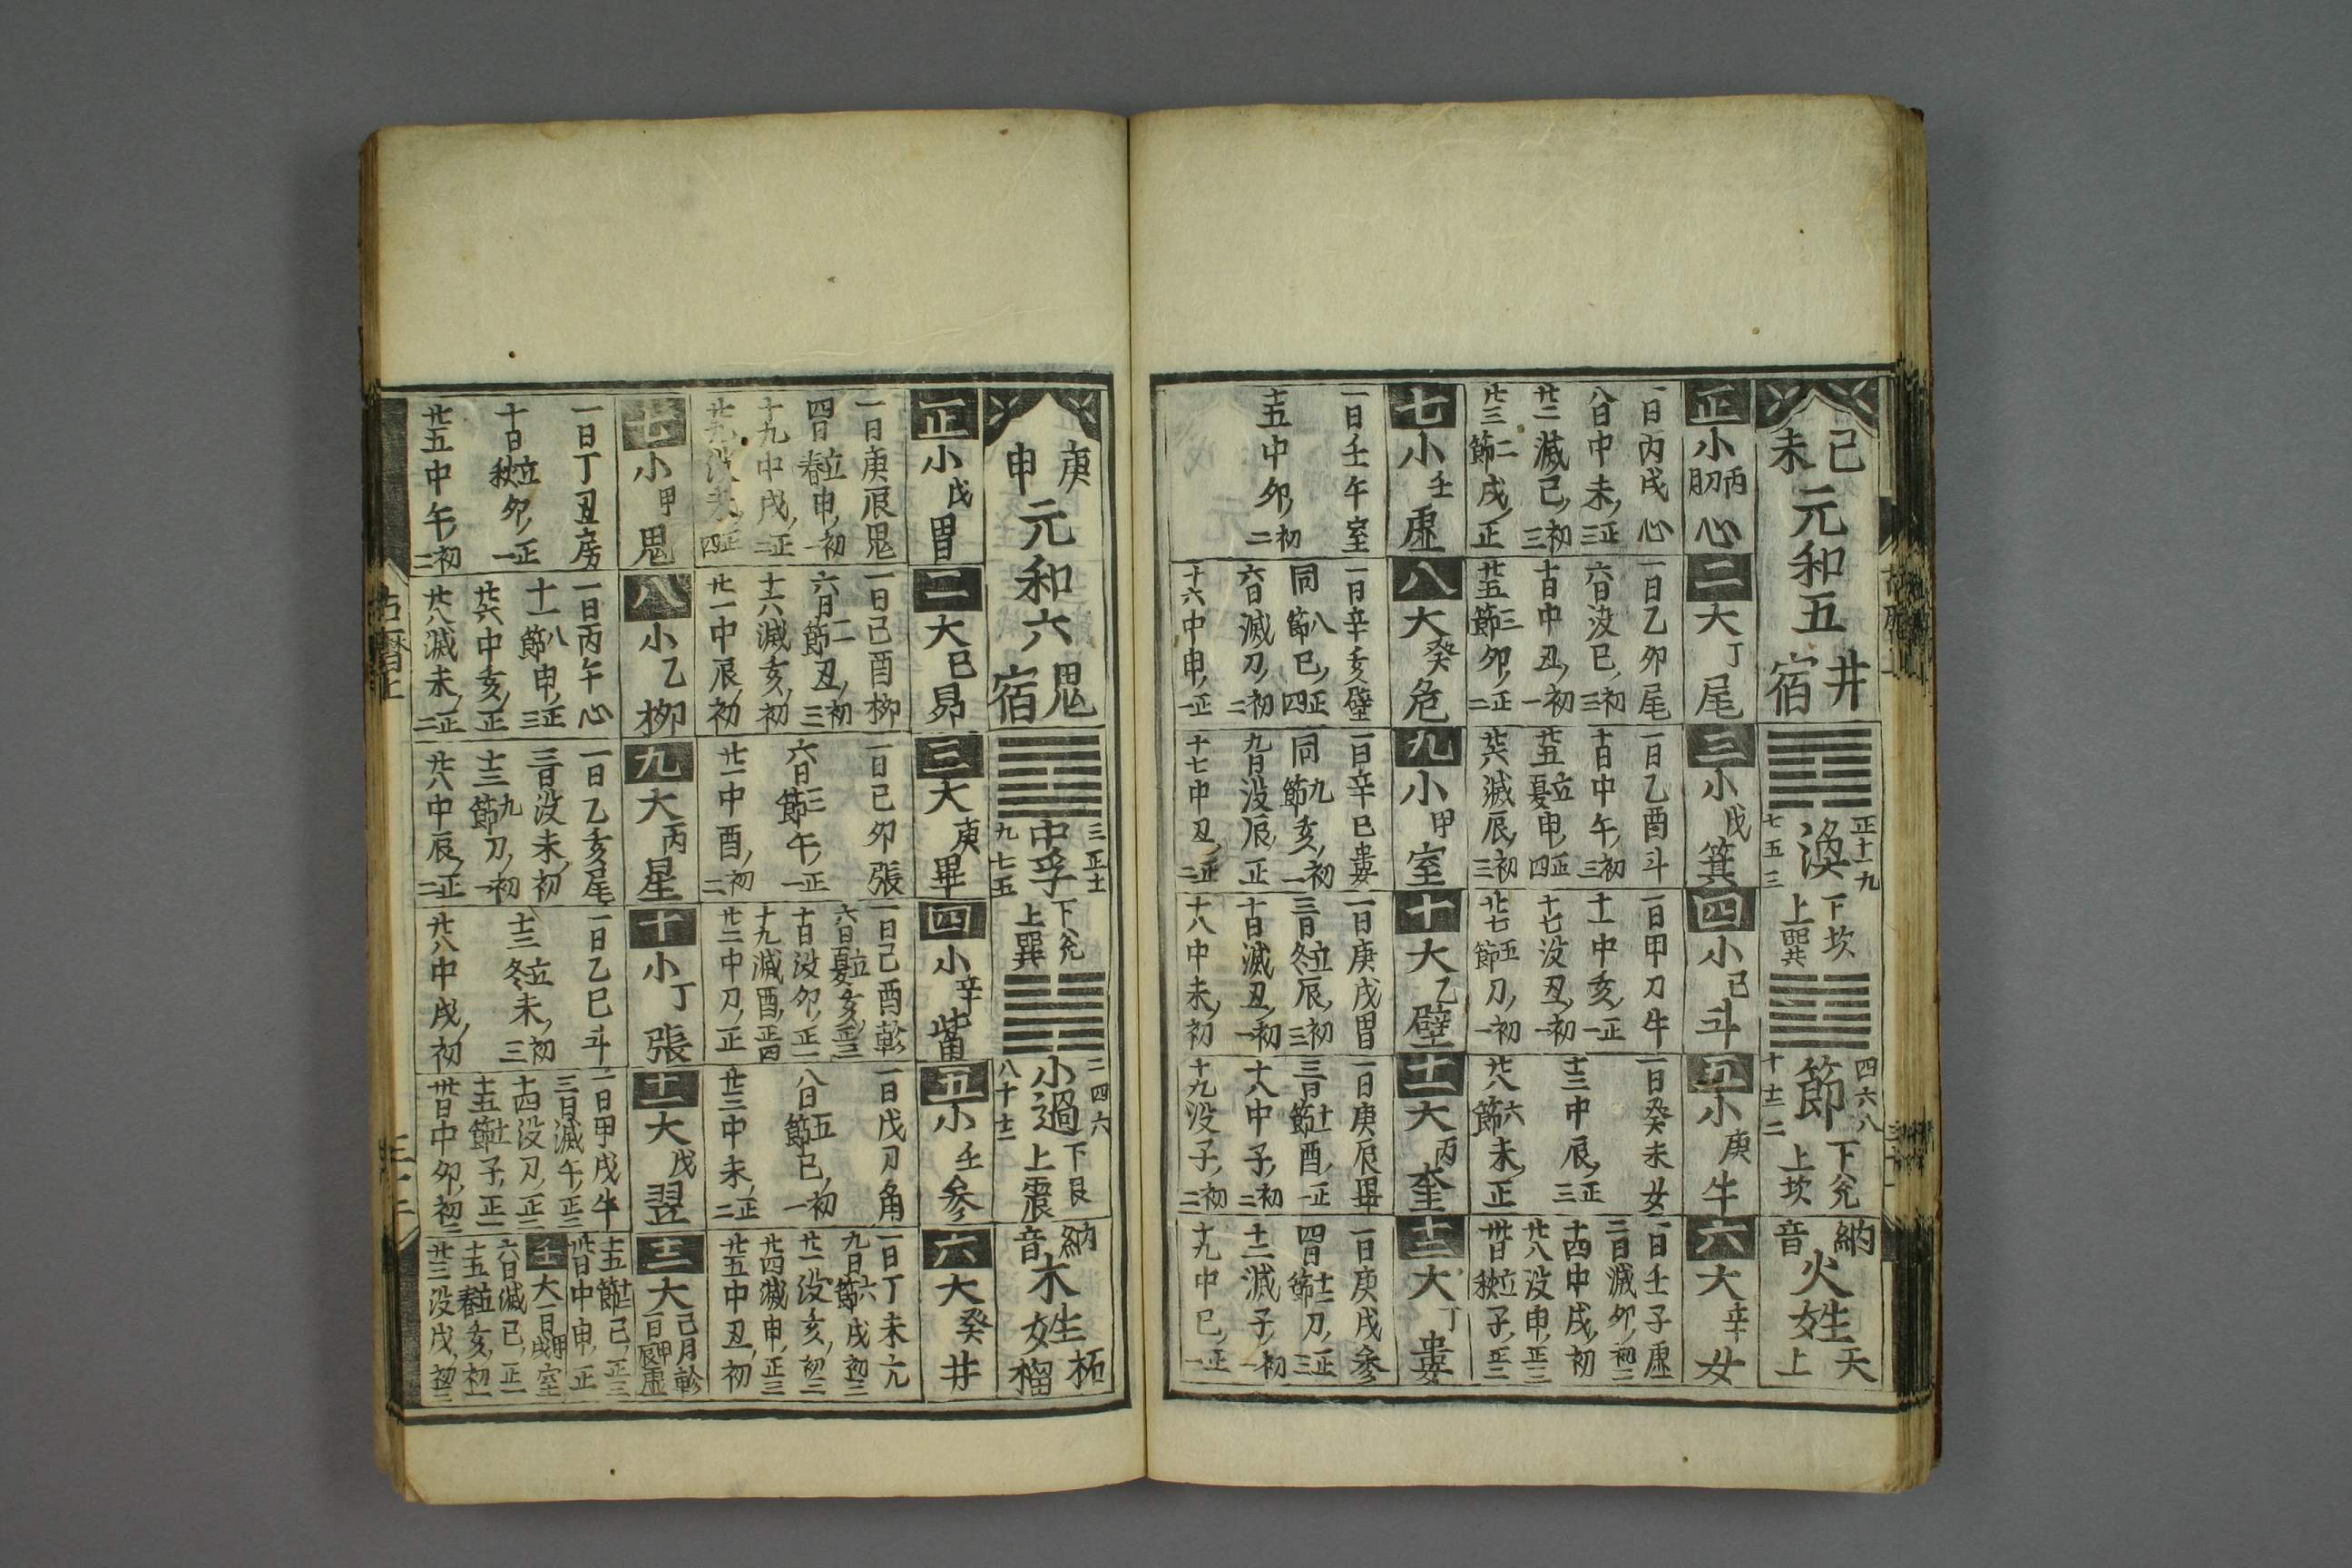 己未
元和五
井宿
渙
正十一九
七五三
下坎
上巽
節
四六八
十十二二
下兌
上坎
納音
火姓
天上
正小 丙 心
一日丙戌心
八日中未正三
廿二滅巳初三
廿三二節戌正
二大丁尾
一日乙卯尾
六日没巳初三
十日中丑初一
廿五三節卯正二
三小戊箕
一日乙酉斗
十日中午初三
廿五立夏申正四
廿六滅辰初三
四小己斗
一日甲刀牛
十一中亥正一
十七没丑初一
廿七五節刀初一
五小庚牛
一日癸未女
十三中辰正三
廿八六節未正
六大辛女
一日壬子虚
二日滅卯初三
十四中戌初
廿八没申正三
卅日立秋子正二
七小壬虚
一日壬午室
十五中卯初二
八大癸危
一日辛亥壁
同八節巳正四
六日滅刀初二
十六中申正一
九小甲室
一日辛巳婁
同九節亥初一
九日没辰正
十七中丑正二
十大乙壁
一日庚戌胃
三日立冬辰初三
十日滅丑初一
十八中未初
十一大丙奎
一日庚辰畢
三日十一節酉正一
十八中子初二
十九没子初二
十二大丁婁
一日庚戌参
四日十二節刀正三
十二滅子初一
十九中巳正一
庚申
元和六
鬼宿
中孚
三正十一
九七五
下兌
上巽
小過
二四六
八十十二
下艮
上震
納音
木姓
柘榴
正小戊胃
一日庚辰鬼
四日立春申初一
十九中戌正二
廿九没未正四
二大己昴
一日己酉柳
六日二節丑初三
十六滅亥初
廿一中辰初
三大庚畢
一日己卯張
六日三節午正一
廿一中酉初二
四小辛觜
一日己酉軫
六日立夏亥正三
十日没卯正一
十九滅酉正四
廿二中刀正
五小壬参
一日戊刀角
八日五節巳初一
廿三中未正二
六大癸井
一日丁未亢
九日六節戌初三
廿一没亥初三
廿四滅申正三
廿五中丑初
七小甲鬼
一日丁丑房
十日立秋卯正一
廿五中午初二
八小乙柳
一日丙午心
十一八節申正三
廿六中亥正
廿八滅未正二
九大丙星
一日乙亥尾
三日没未初
十三九節刀初一
廿八中辰正二
十小丁張
一日乙巳斗
十三立冬未初三
廿八中戌初
十一大戊翌
一日甲戌牛
三日滅午正三
十四没刀正二
十五十一節子正一
卅日中卯初二
十二大己月軫
一日甲辰虚
十五十二節巳正三
卅日中申正
壬大一日甲戌室
六日滅巳正一
十五立春亥初一
廿三没戌初三
古暦上
三十二